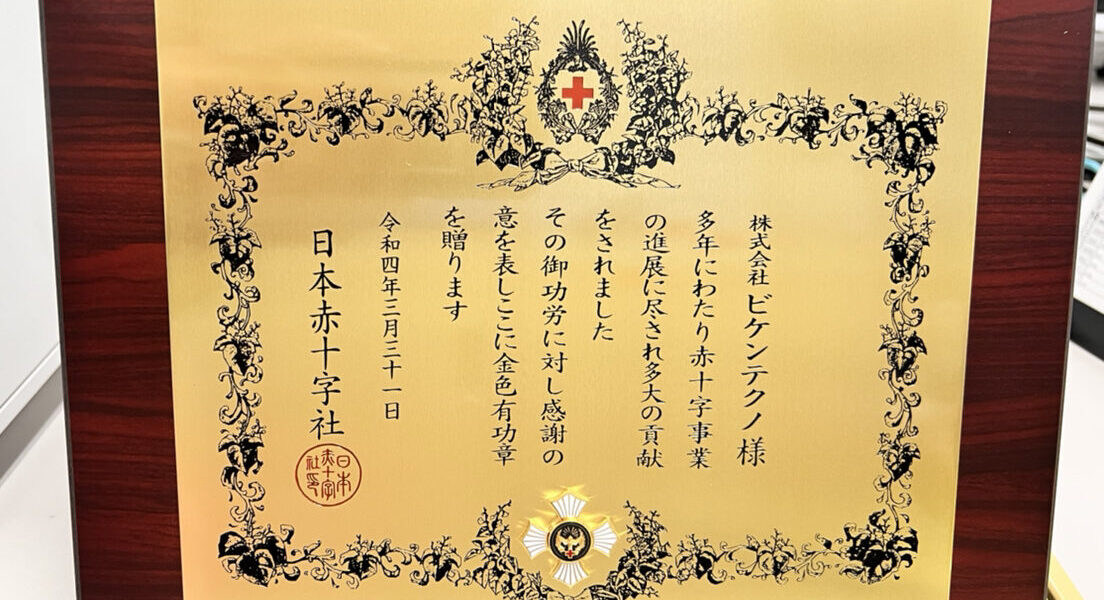 株式会社 ビケンテクノ 様
多年にわたり赤十字事業
の進展に尽され多大の貢献
をされました
その御功労に対し感謝の
意を表しここに金色有功章
を贈ります
令和四年三月三十一日
日本赤十字社
日本赤十字社印